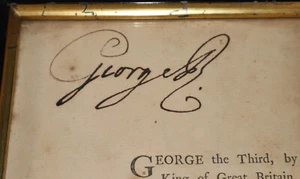 George R.
GEORGE the Third, by
King of Great Britain